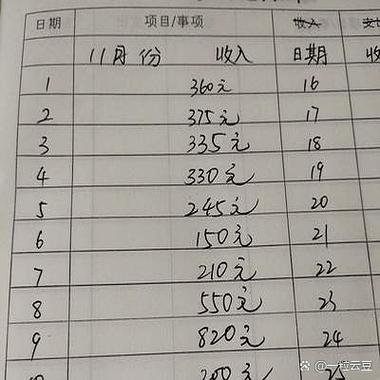 日期 项目/事项 收入
11月份 收入 日期
1 360元 16
2 375元 17
3 335元 18
4 330元 19
5 245元 20
6 150元 21
7 210元 22
8 550元 23
9 820元 24
25
@一粒云豆